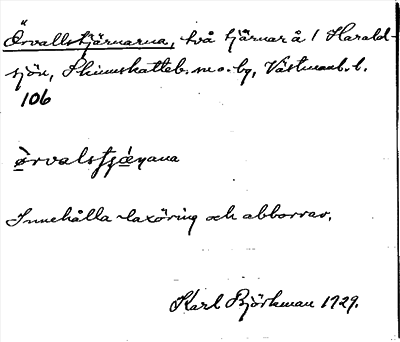 Örvallstjärnarna, två tjärnar å / Harald-
sjön, Skinnskatteb. sn o. bg, Västmanl. l.
106
ørvalstjæ̣ṇana
Innehålla laxöring och abborrar.
Karl Björkman 1929.